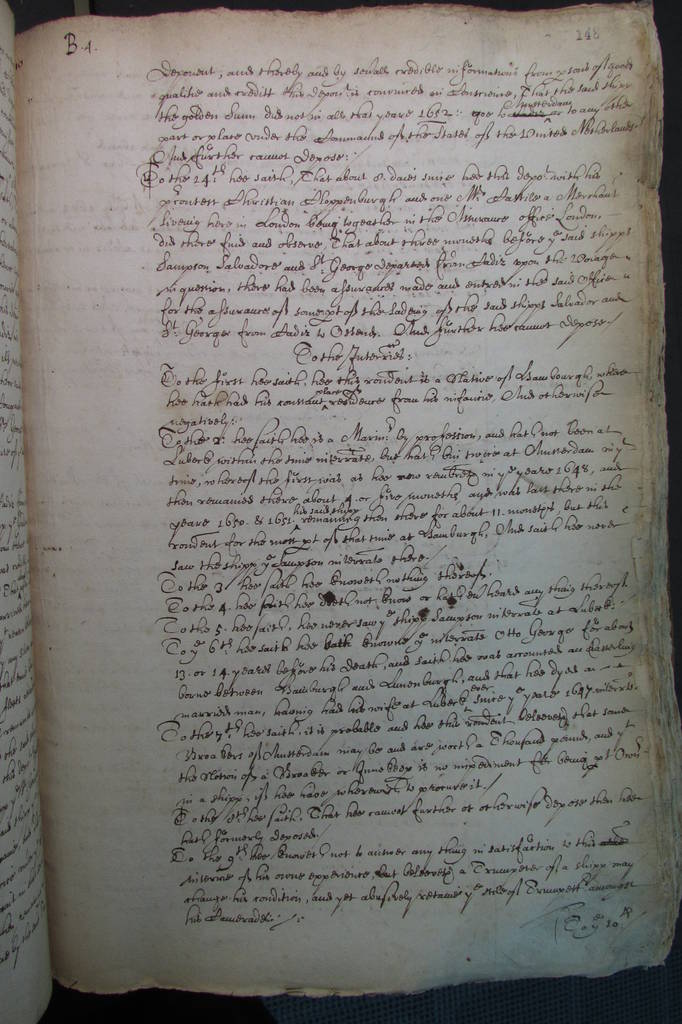 B.4.
148
deponent, and thereby and by severall credible informations from persons of good
qualitie and creditt this depont is convinced in Conscience, That the said shipp
the golden Sunn did not in all that yeare 1652: goe to Amsterdam or to any other
port or place under the Command of the States of the United Netherlands
And further cannot depose:
To the 24th hee saith, That about 8. daies since hee this depot with his
precontest Christian Cloppenburgh and one Mr a Merchant
liveing here in London being together in the Assurance office London.
did there find and observe, That about three moneths before ye said shipps
Sampson Salvadore and St George departed from Cadiz upon the Voiage
in question, there had been assurances made and entred in the said office
for the assurance of some pt of the ladeing of the said shipps Salvador and
St: George from Cadiz to Ostend. And further hee cannot depose./
To the Interries:
To the first hee saith, hee this rendent is a Native of Hambourgh, where
hee hath had his constant place of residence from his infancie, And otherwise
negatively:
To the 2: hee saith hee is a Marinr by profession, and hath not been at
Lubeck within the time interrate, but hath bin twice at Amsterdam in ye
time, whereof the first was as hee now rembreth in ye yeare 1648, and
then remained there about 4 or five moneths and was last there in the
yeare 1650. & 1651. his said shipp remaining then there for about 11. moneths, but this
rendent for the most pt of that time at Hamburgh, And saith hee never
saw the shipp ye Sampson interrate there
To the 3. hee saith hee knoweth nothing thereof.
To the 4. hee saith hee doeth not know or hath heard any thing thereof.
To the 5. hee saith, hee never saw ye shipp Sampson interrate at Lubeck.
To ye 6th hee saith hee hath knowne ye interrate Otto George for about
13. or 14. yeares before his death, and saith hee was accounted an Easterling
borne between Hamburgh and Lunenburgh, and that hee dyed a
married man, haveing had his wife at Lubeck ever since ye yeare 1647 interrte.
To the 7th hee saith, it is probable and hee this rendent beleeveth that some
Broakers of Amsterdam may be and are worth a Thousand pounds, and yt
the Notion of a Broaker or Innekeep is no impediment for being pt Owner
in a shipp, if hee have wherewith to procure it./
To the 8th hee saith, That hee cannot further or otherwise depose then hee
hath formerly deposed.
To the 9th hee knoweth not to answer any thing in satisfaction to this
interrie of his owne experience, but beleeveth a Trumpeter of a shipp may
change his condition, and yet abusively retaine ye title of Trumpettr amongst
his Camerades./:
To ye 10th